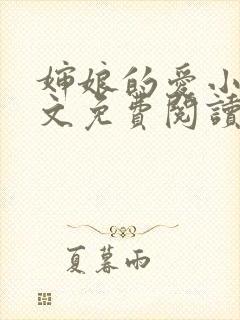 婶娘的爱小
文免费阅读
夏暮雨